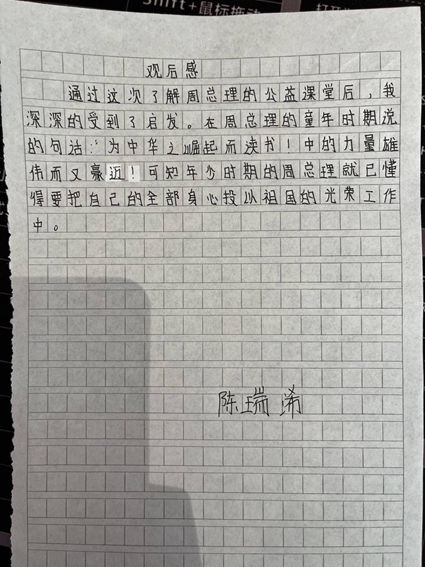 Shift+鼠标拖动
打开
观后感
通过这次了解周总理的公益课堂后,我
深深的受到了启发。在周总理的童年时期说
的句话:为中华之崛起而读书!中的力量雄
伟而又豪迈!可知年少时期的周总理就已懂
得要把自己的全部身心投以祖国的光荣工作
中。
陈瑞浠